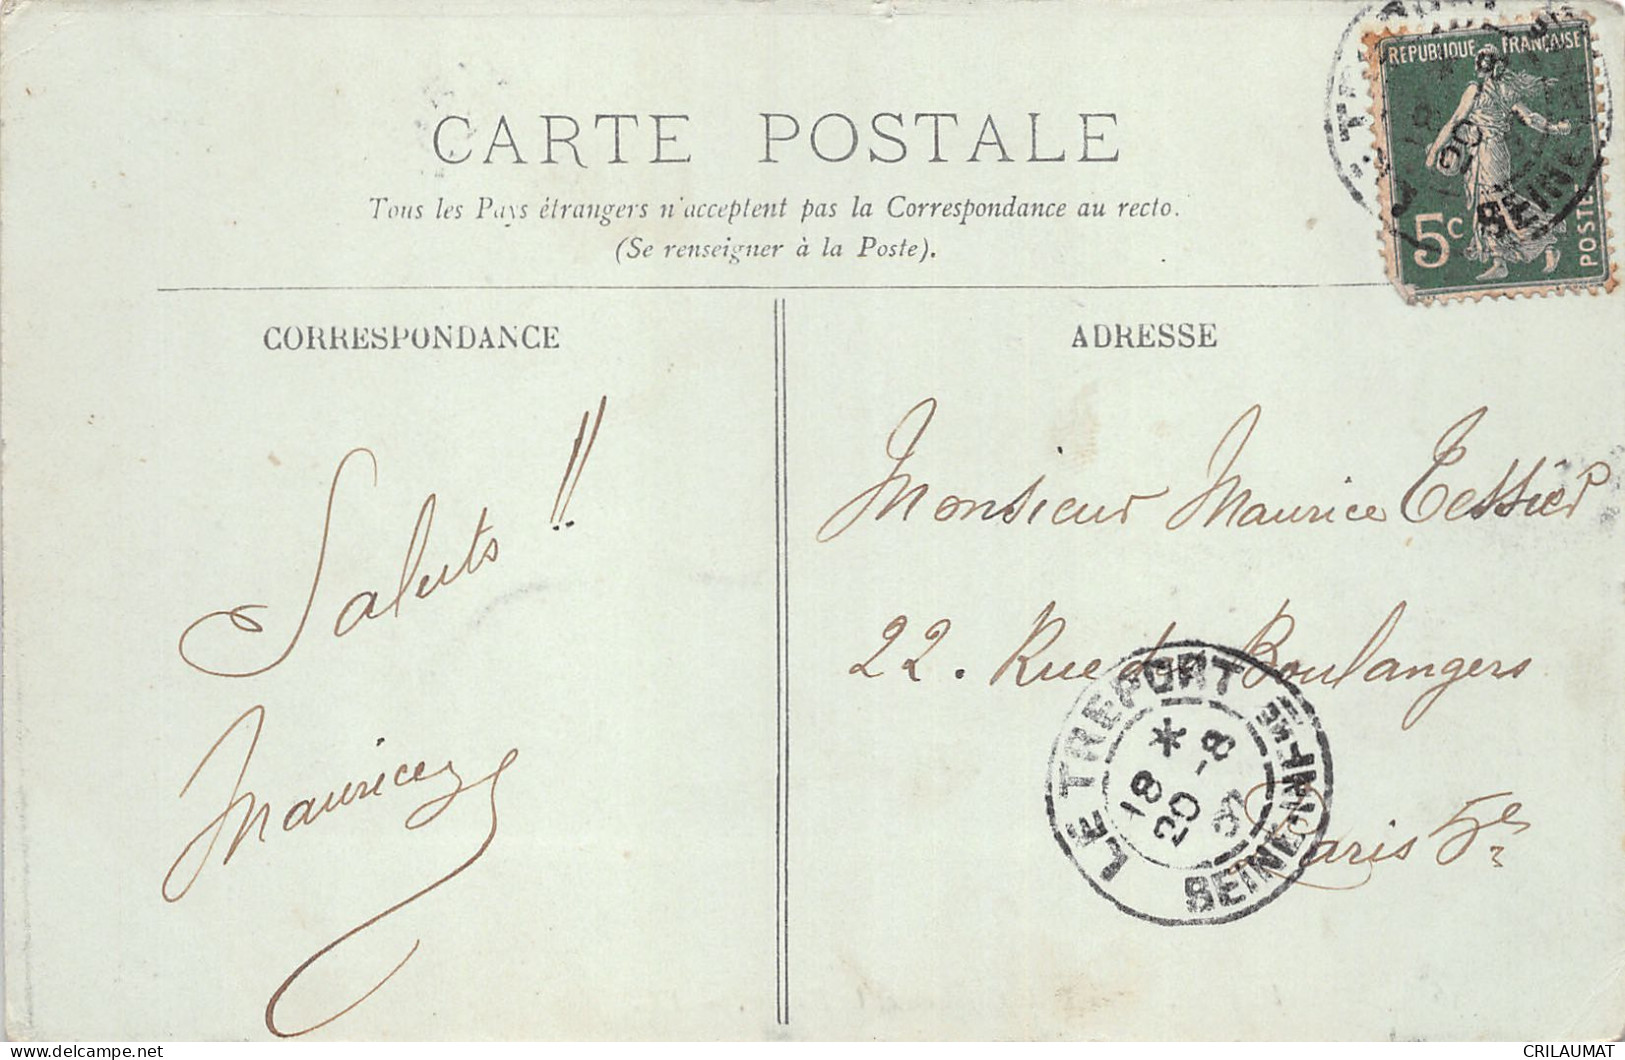 CARTE POSTALE
Tous les Pays étrangers n'acceptent pas la Correspondance au recto.
(Se renseigner à la Poste).
REPUBLIQUE FRANÇAISE
5c
POSTES
CORRESPONDANCE
ADRESSE
Saluts !!
Maurice
Monsieur Maurice Tessier
22. Rue de Boulangers
Paris 5e
LE TREPORT
SEINE-INFRE
* 18
20 -8
CRILAUMAT